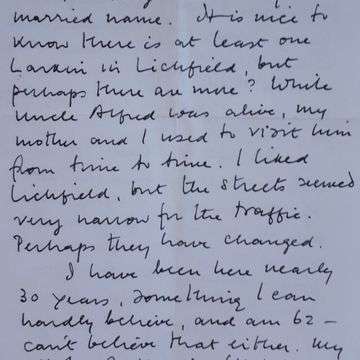 married name. It is nice to
know there is at least one
Larkin in Lichfield, but
perhaps there are more? While
Uncle Alfred was alive, my
mother and I used to visit him
from time to time. I liked
Lichfield, but the streets seemed
very narrow for the traffic.
Perhaps they have changed.
I have been here nearly
30 years, something I can
hardly believe, and am 62 –
can't believe that either. My